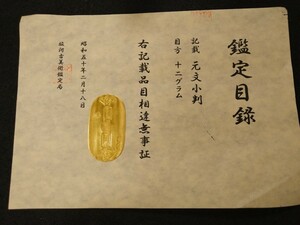 鑑定目録
記載 元文小判
目方 十二グラム
右記載品目相違無事証
昭和五十年二月十八日
駿河古美術鑑定局